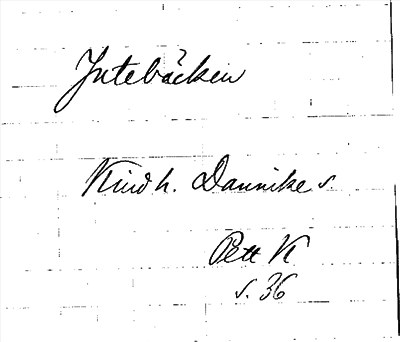 Intebäcken
Kind h. Dannike s.
Pett K
s. 36